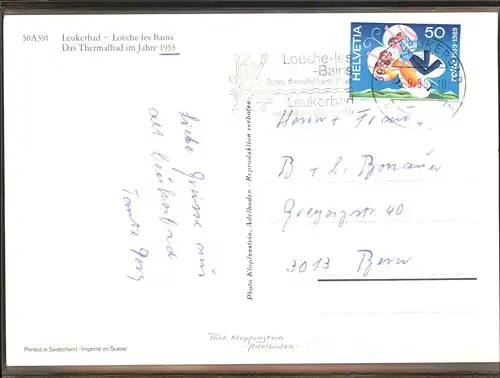 50A391 Leukerbad – Loèche les Bains
Das Thermalbad im Jahre 1953
HELVETIA 50
1989
Loèche-les
-Bains
Leukerbad
Liebe Grüsse aus
Leukerbad
Tante
Herrn + Frau
B + L. Bonauer
40
3013 Bern
Photo Klopfenstein, Adelboden - Reproduktion verboten
Phot. Klopfenstein
- Adelboden -
Printed in Switzerland - Imprimé en Suisse